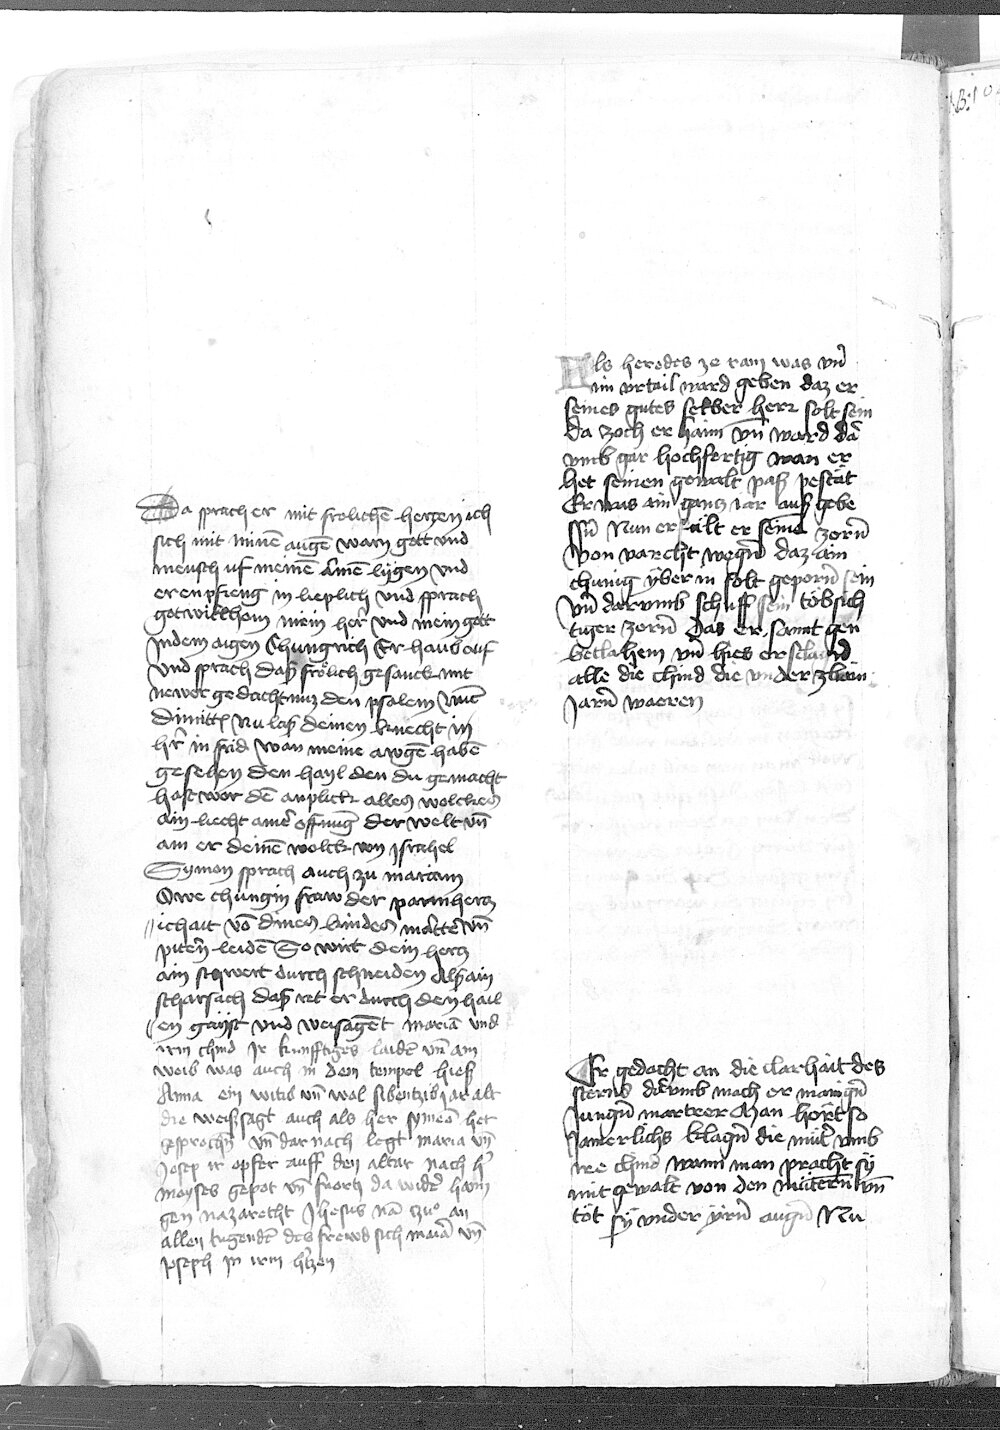 Da sprach er mit frolichē hertzen ich
sich mit minē augē warn gott vnd
mensch uf meinē armē ligen vnd
er enpfieng in lieplich vnd sprach
got willkom mein her vnd mein got
In dem aigen Chungrich Er haub auf
vnd sprach daß frölich gesanck mit
newer gedachtnuz den psalem Nūc
dimittis Nu laß deinen knecht in
hr in frid wan meine awgē habē
gesehen den hayl den du gemacht
hast vor dē anplick alles wolckes
ain liecht ainer offnūg der welt vn̄
ain er deinē wolck von Jsrahel
Symon sprach auch zu mariam
Owe chungin fraw der parmhertz
ichait vō dines kindes marter vn̄
piterm leidē So wirt dein hertz
ain schwert durch schneiden Als ain
scharsach daß ret er durch den hail
en gayst vnd weisagēt mariā vnd
irm chind Jr kunfftigs laidē vn̄ ain
weib was auch in dem tempel hieß
Anna ein witib vn̄ wol sibentzig jar alt
die weissagt auch als her symeō het
gesprochn̄ vn̄ dar nach legt maria vn̄
Josep ir opfer auff den altar nach hr
moyses gepot vn̄ fuorn da wider haim
gen nazarecht Jhesus nā zuo an
allen tugendē des frewd sich mariā vn̄
Joseph in irm hertzen
Als herodes ze ram was vn̄
im vrtail ward geben daz er
seines gutes selber herr solt sein
da zoch er haim vn̄ ward dar
vmb gar hochfertig wan er
het seinen gewalt paß pestät
Er was ain gantz iar auß gebe
ssn̄ Nun er füllt er seinē zorn̄
von varcht wegn̄ daz ain
chunig yber in solt geporn̄ sein
vn̄ darvmb schuff sein tobsich
tiger zorn̄ das er sannt gen
betlahem vn̄ hies er slachn̄d
alle die chind die vnder zwain
Jarn̄ waeren
Er gedacht an die clarhait des
sterns darvmb mach er mangn̄
Jungn̄ martrer Man hort so
Jamerlichs klagn̄ die müter vmb
ire chind wann man pracht sÿ
mit gewalt von den mütern̄ vn̄
töt sÿ vnder ÿrn̄ augn̄ Nu